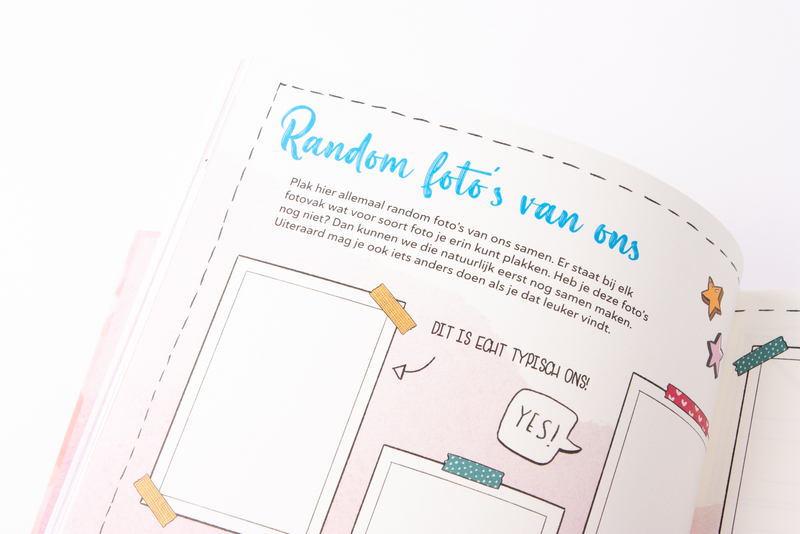 Random foto's van ons
Plak hier allemaal random foto's van ons samen. Er staat bij elk
fotovak wat voor soort foto je erin kunt plakken. Heb je deze foto's
nog niet? Dan kunnen we die natuurlijk eerst nog samen maken.
Uiteraard mag je ook iets anders doen als je dat leuker vindt.
DIT IS ECHT TYPISCH ONS!
YES!